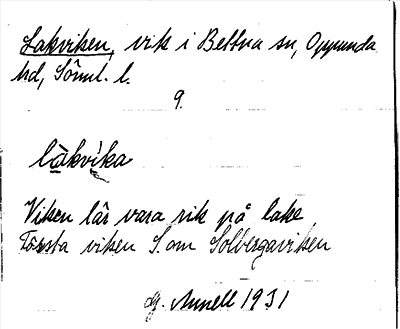 Lakviken, vik i Bettna sn, Oppunda
hd, Söml. l.
9.
làkvika
Viken lär vara rik på lake
Första viken S. om Solbergaviken
G. Annell 1931